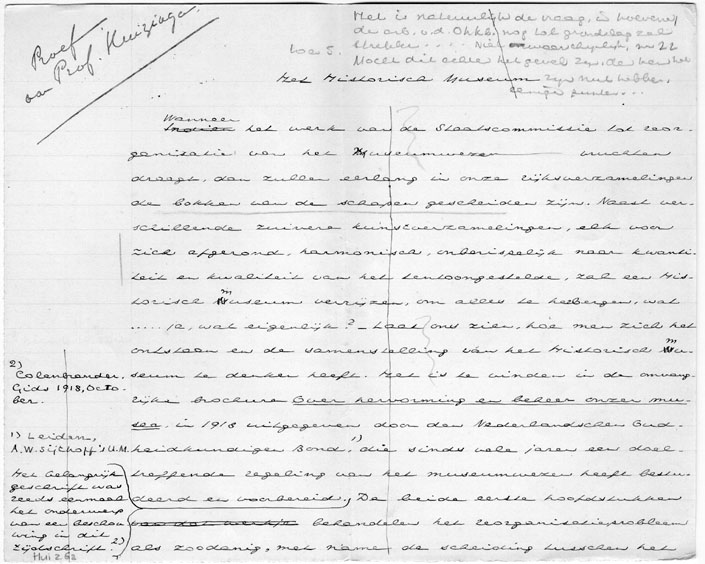 Proef
aan Prof. Huizinga.
Het is natuurlijk de vraag, in hoeverre
de arb. v.d. O.h.k.b. nog tot grondslag zal
strekken ....
Mocht dit echter het geval zijn, de kan het
zijn nut hebben,
eenige punten ...
Het Historisch Museum
Wanneer
Indien het werk van de Staatscommissie tot reor-
ganisatie van het Museumwezen vruchten
draagt, dan zullen eerlang in onze rijksverzamelingen
de bokken van de schapen gescheiden zijn. Naast ver-
schillende zuivere kunstverzamelingen, elk voor
zich afgerond, harmonisch, onberispelijk naar kwanti-
teit en kwaliteit van het tentoongestelde, zal een His-
torisch museum verrijzen, om alles te herbergen, wat
..... ja, wat eigenlijk? – Laat ons zien, hoe men zich het
ontstaan en de samenstelling van het Historisch mu-
seum te denken heeft. Het is te vinden in de omvang-
rijke brochure Over hervorming en beheer onzer mu-
sea, in 1918 uitgegeven door den Nederlandschen Oud-
heidkundigen Bond,1) die sinds vele jaren een doel-
treffende regeling van het museumwezen heeft bestu-
deerd en voorbereid. De beide eerste hoofdstukken
van dat werkje behandelen het reorganisatieprobleem
als zoodanig, met name de scheiding tusschen het
2)
Colenbrander,
Gids 1918, Octo-
ber.
1) Leiden,
A.W. Sijthoff's U.M.
Het belangrijk
geschrift was
reeds eenmaal
het onderwerp
van een beschou
wing in dit
tijdschrift. 2)
Hui 262